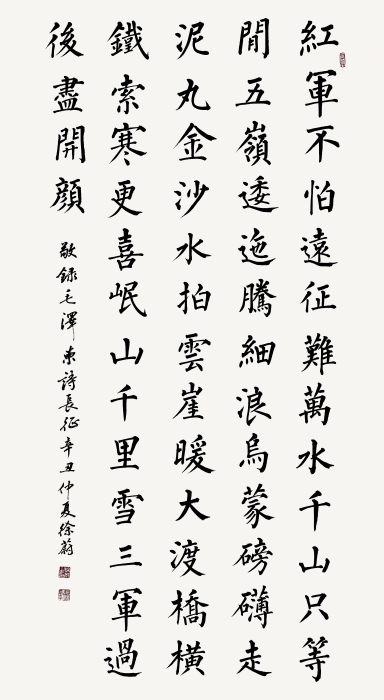 紅軍不怕遠征難萬水千山只等
閒五嶺逶迤騰細浪烏蒙磅礴走
泥丸金沙水拍雲崖暖大渡橋橫
鐵索寒更喜岷山千里雪三軍過
後盡開顏
敬錄毛澤東詩長征辛丑仲夏徐蔚